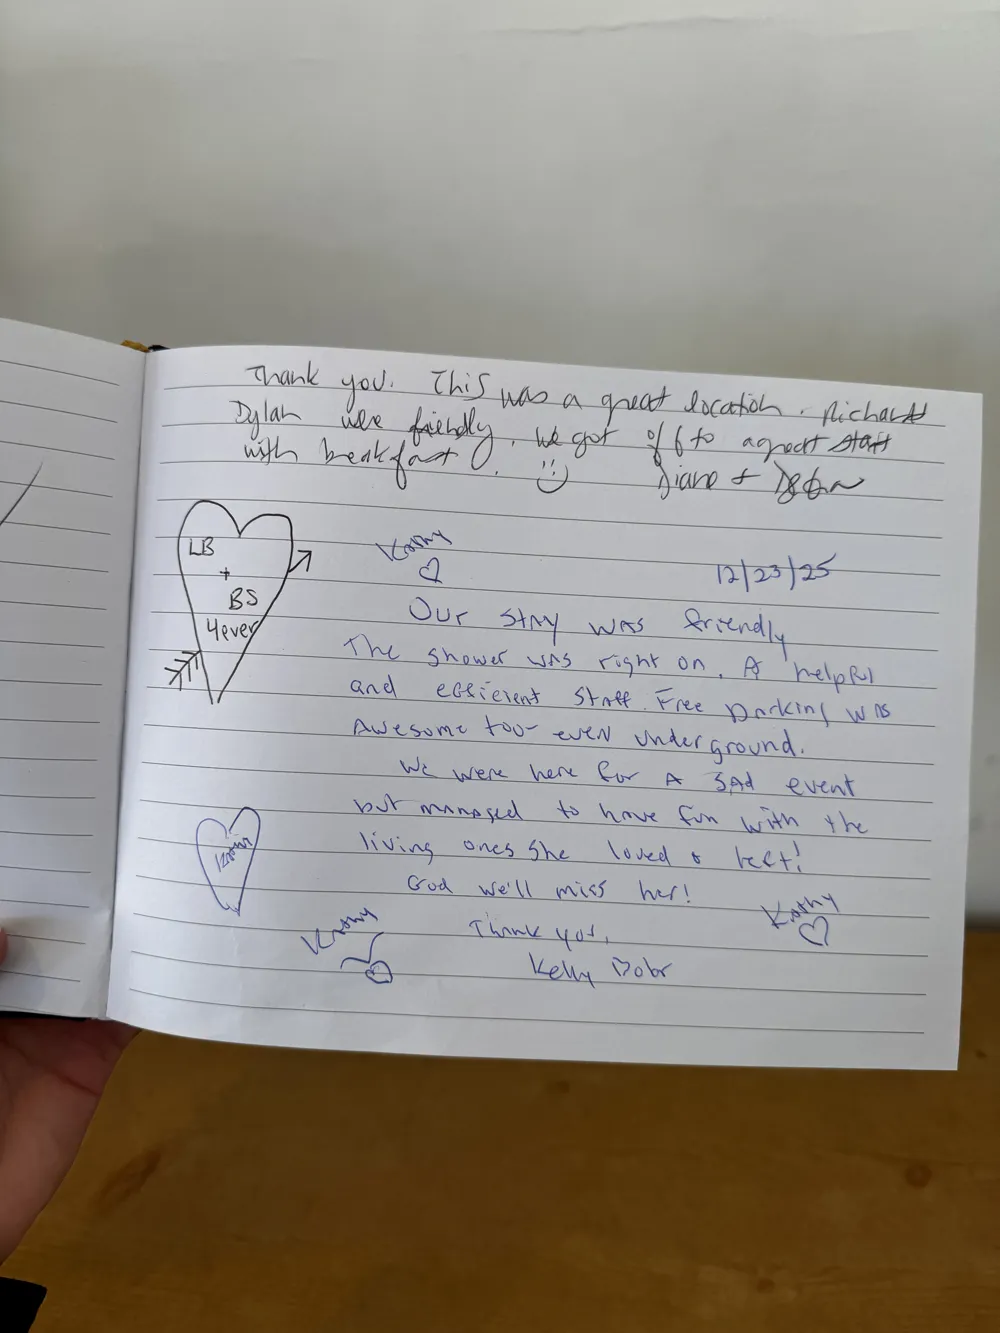 Thank you. This was a great location. Richard +
Dylan were friendly. We got off to a great start
with breakfast.
Diane +
LB
+
BS
4ever
Kathy
12/23/25
Our stay was friendly
The shower was right on. A helpful
and efficient staff. Free parking was
Awesome too- even underground.
We were here for a sad event
but managed to have fun with the
living ones she loved best!
God we'll miss her!
Kathy
Kathy
Thank you,
Kelly